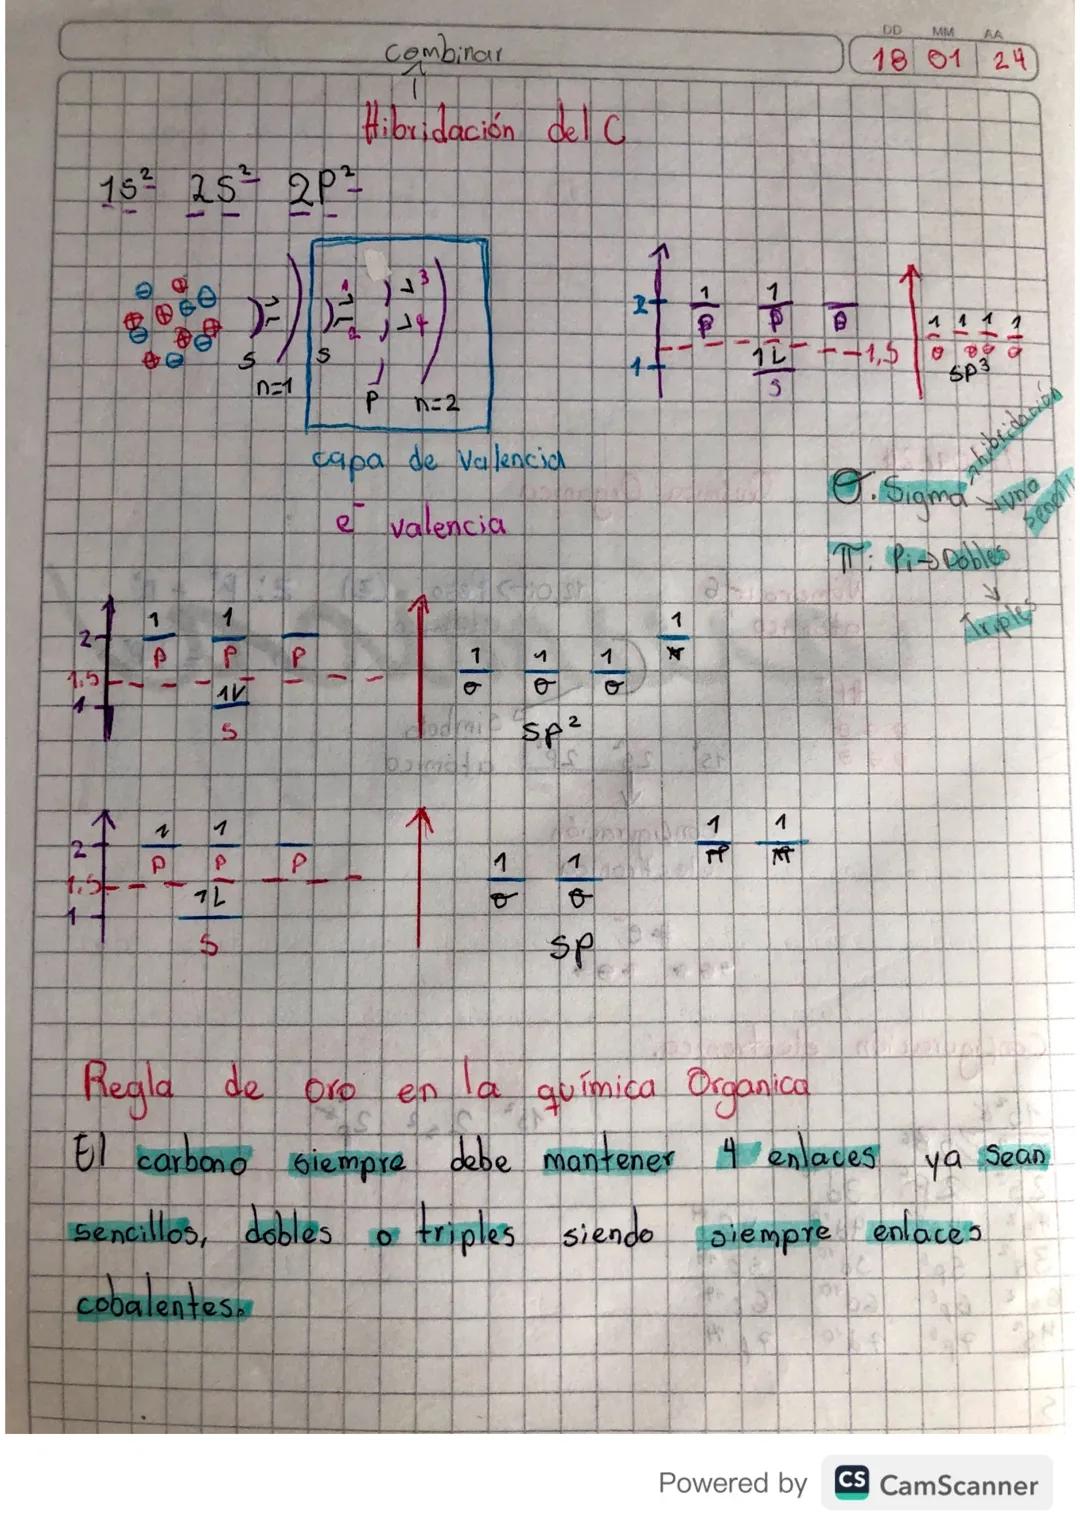 DD MM AA
18 01 24
combinar
Hibridación del C
1s² 2s² 2p²
s n=1
s p n=2
3
4
capa de Valencia
e⁻ valencia
2
1 1
p p p
1L
s
1
1,5
1 1 1 1
σ σ σ σ
sp³
σ: Sigma → hibridación
→ uno
π: Pi → Dobles
↓
Triples
2
1 1
p p p
1,5
1
1L
s
1 1 1 1
σ σ σ π
sp²
2
1 1
p p p
1,5
1
1L
s
1 1 1 1
σ σ π π
sp
Regla de oro en la química Organica
El carbono siempre debe mantener 4 enlaces ya sean
sencillos, dobles o triples siendo siempre enlaces
cobalentes.
Powered by CS CamScanner